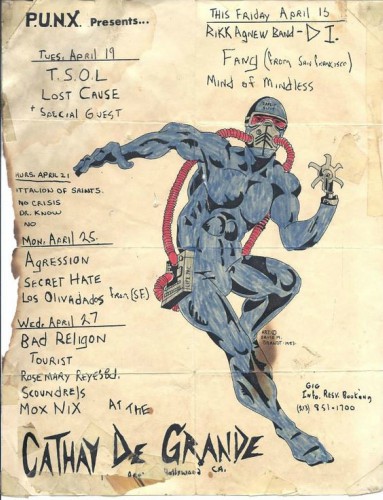 P.U.N.X. Presents...
Tues. April 19
T.S.O.L
Lost Cause
+ Special Guest
Thurs. April 21
ttalion of Saints.
No Crisis
Dr. Know
No
Mon. April 25.
Agression
Secret Hate
Los Olivadados From (SF)
Wed. April 27
Bad Religon
Tourist
Rosemary Reyes Bd.
Scoundrels
Mox Nix
This Friday April 15
Rikk Agnew Band - D I.
Fang (From San Francisco)
Mind of Mindless
Art ©
Gig
Info. Resv. Booking
851-1700
At The
Cathay De Grande
Hollywood CA.